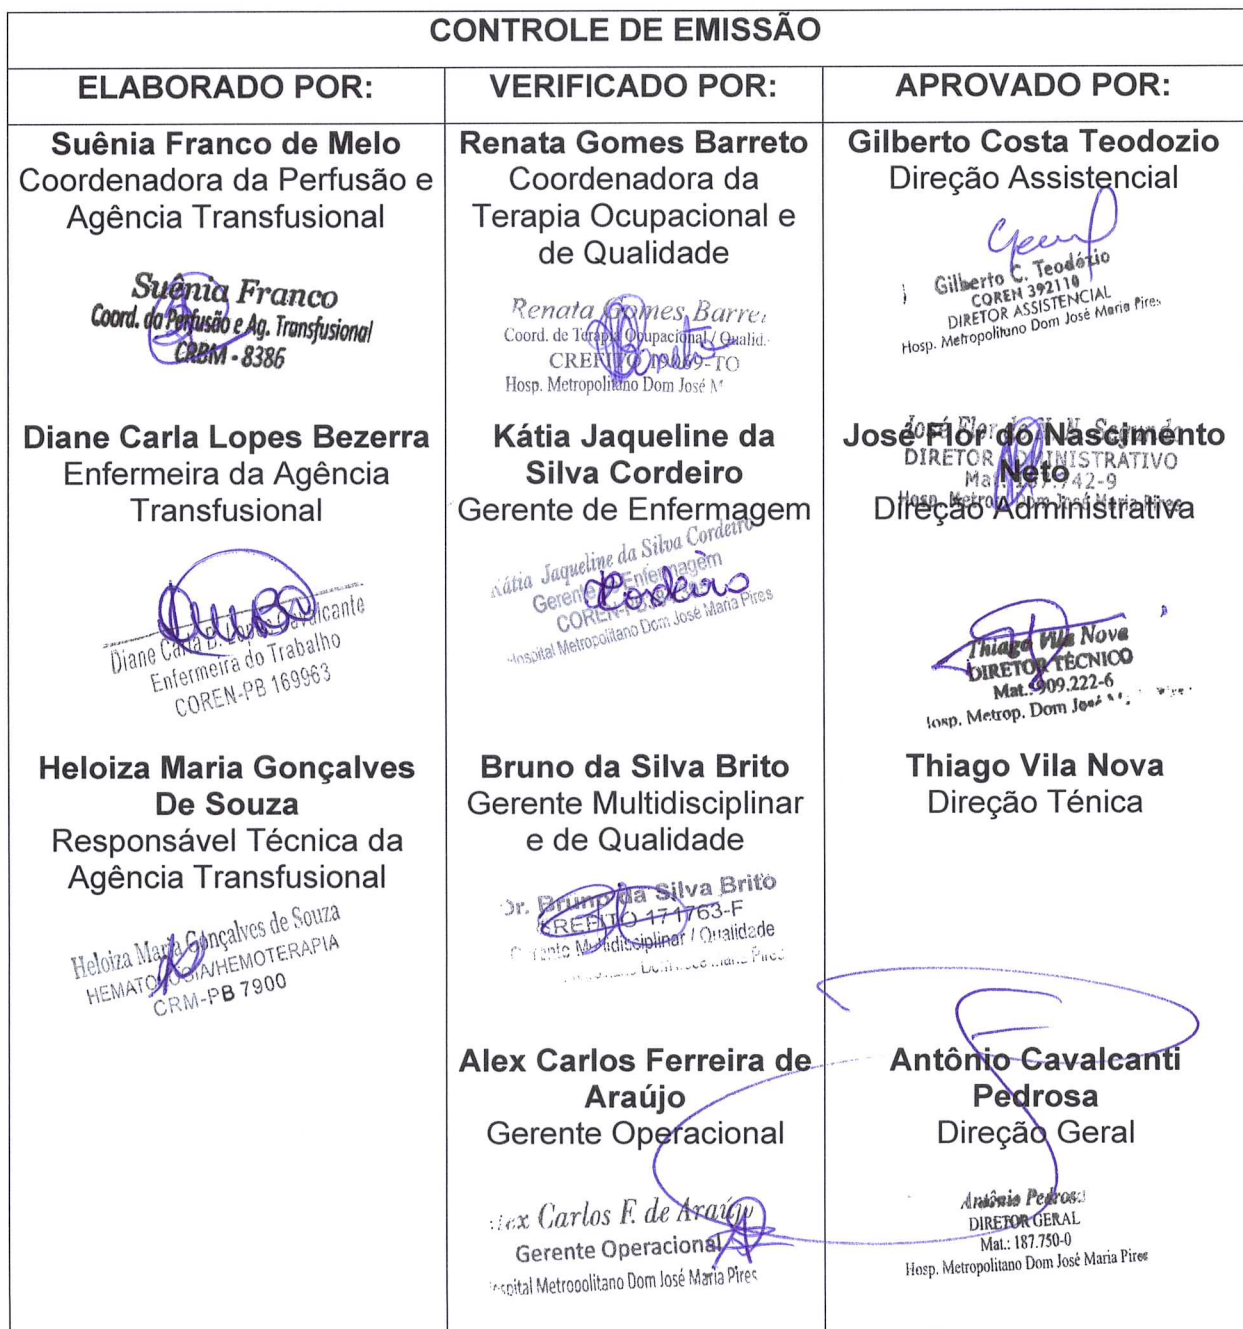 CONTROLE DE EMISSÃO
ELABORADO POR:
VERIFICADO POR:
APROVADO POR:
Suênia Franco de Melo
Coordenadora da Perfusão e
Agência Transfusional
Suênia Franco
Coord. da Perfusão e Ag. Transfusional
CRBM - 8386
Diane Carla Lopes Bezerra
Enfermeira da Agência
Transfusional
Diane Carla B. Lopes Cavalcante
Enfermeira do Trabalho
COREN-PB 169963
Heloiza Maria Gonçalves
De Souza
Responsável Técnica da
Agência Transfusional
Heloiza Maria Gonçalves de Souza
HEMATOLOGIA/HEMOTERAPIA
CRM-PB 7900
Renata Gomes Barreto
Coordenadora da
Terapia Ocupacional e
de Qualidade
Renata Gomes Barre
Coord. de Terapia Ocupacional / Qualid.
CREFITO 19069-TO
Hosp. Metropolitano Dom José M
Kátia Jaqueline da
Silva Cordeiro
Gerente de Enfermagem
Kátia Jaqueline da Silva Cordeiro
Gerente Enfermagem
COREN
Cordeiro
Hospital Metropolitano Dom José Maria Pires
Bruno da Silva Brito
Gerente Multidisciplinar
e de Qualidade
Dr. Bruno da Silva Brito
CREFITO 171763-F
Multidisciplinar / Qualidade
Alex Carlos Ferreira de
Araújo
Gerente Operacional
Alex Carlos F. de Araújo
Gerente Operacional
Hospital Metropolitano Dom José Maria Pires
Gilberto Costa Teodozio
Direção Assistencial
Gilberto C. Teodózio
COREN 392110
DIRETOR ASSISTENCIAL
Hosp. Metropolitano Dom José Maria Pires
José Flor do Nascimento
Neto
Direção Administrativa
José Flor
DIRETOR ADMINISTRATIVO
Mat. 742-9
Hosp. Metrop. Dom José Maria Pires
Thiago Vila Nova
DIRETOR TÉCNICO
Mat.: 909.222-6
Hosp. Metrop. Dom José
Thiago Vila Nova
Direção Ténica
Antônio Cavalcanti
Pedrosa
Direção Geral
Antônio Pedrosa
DIRETOR GERAL
Mat.: 187.750-0
Hosp. Metropolitano Dom José Maria Pires